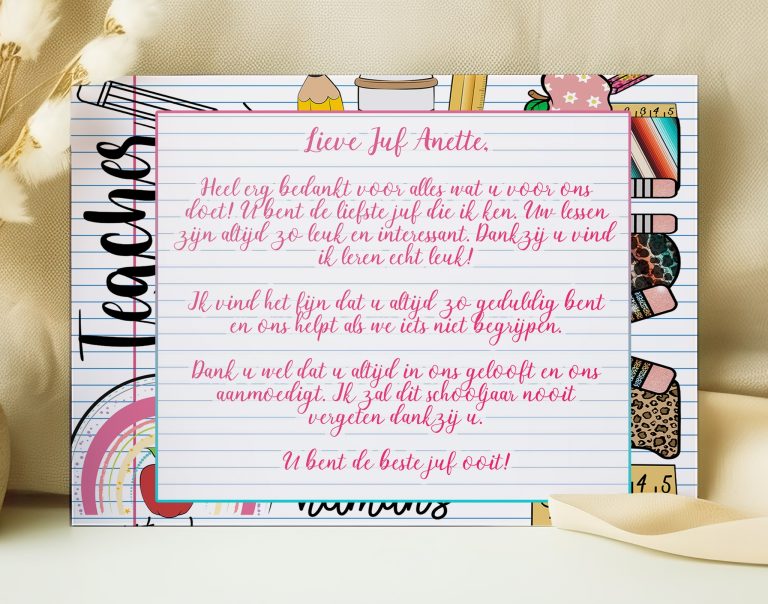 Lieve Juf Anette,
Heel erg bedankt voor alles wat u voor ons
doet! U bent de liefste juf die ik ken. Uw lessen
zijn altijd zo leuk en interessant. Dankzij u vind
ik leren echt leuk!
Ik vind het fijn dat u altijd zo geduldig bent
en ons helpt als we iets niet begrijpen.
Dank u wel dat u altijd in ons gelooft en ons
aanmoedigt. Ik zal dit schooljaar nooit
vergeten dankzij u.
U bent de beste juf ooit!
Teacher
humans
2 3 4 5
4 5